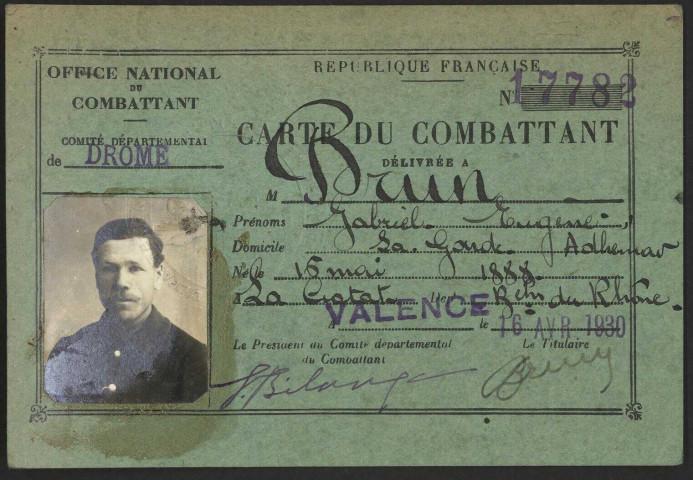 OFFICE NATIONAL
DU
COMBATTANT
COMITÉ DÉPARTEMENTAL
de DROME
REPUBLIQUE FRANÇAISE
N° 17782
CARTE DU COMBATTANT
DÉLIVRÉE A
M Brun
Prénoms Gabriel Eugene
Domicile La Garde Adhemar
Né le 15 mai 1888
La Ciotat Bches du Rhône
A VALENCE le 16 AVR 1930
Le President du Comité départemental
du Combattant
Le Titulaire
Brun